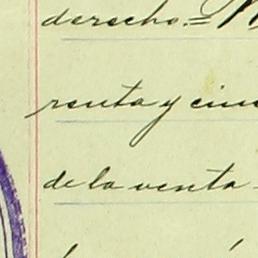 derecho.=
renta y cin
de la venta